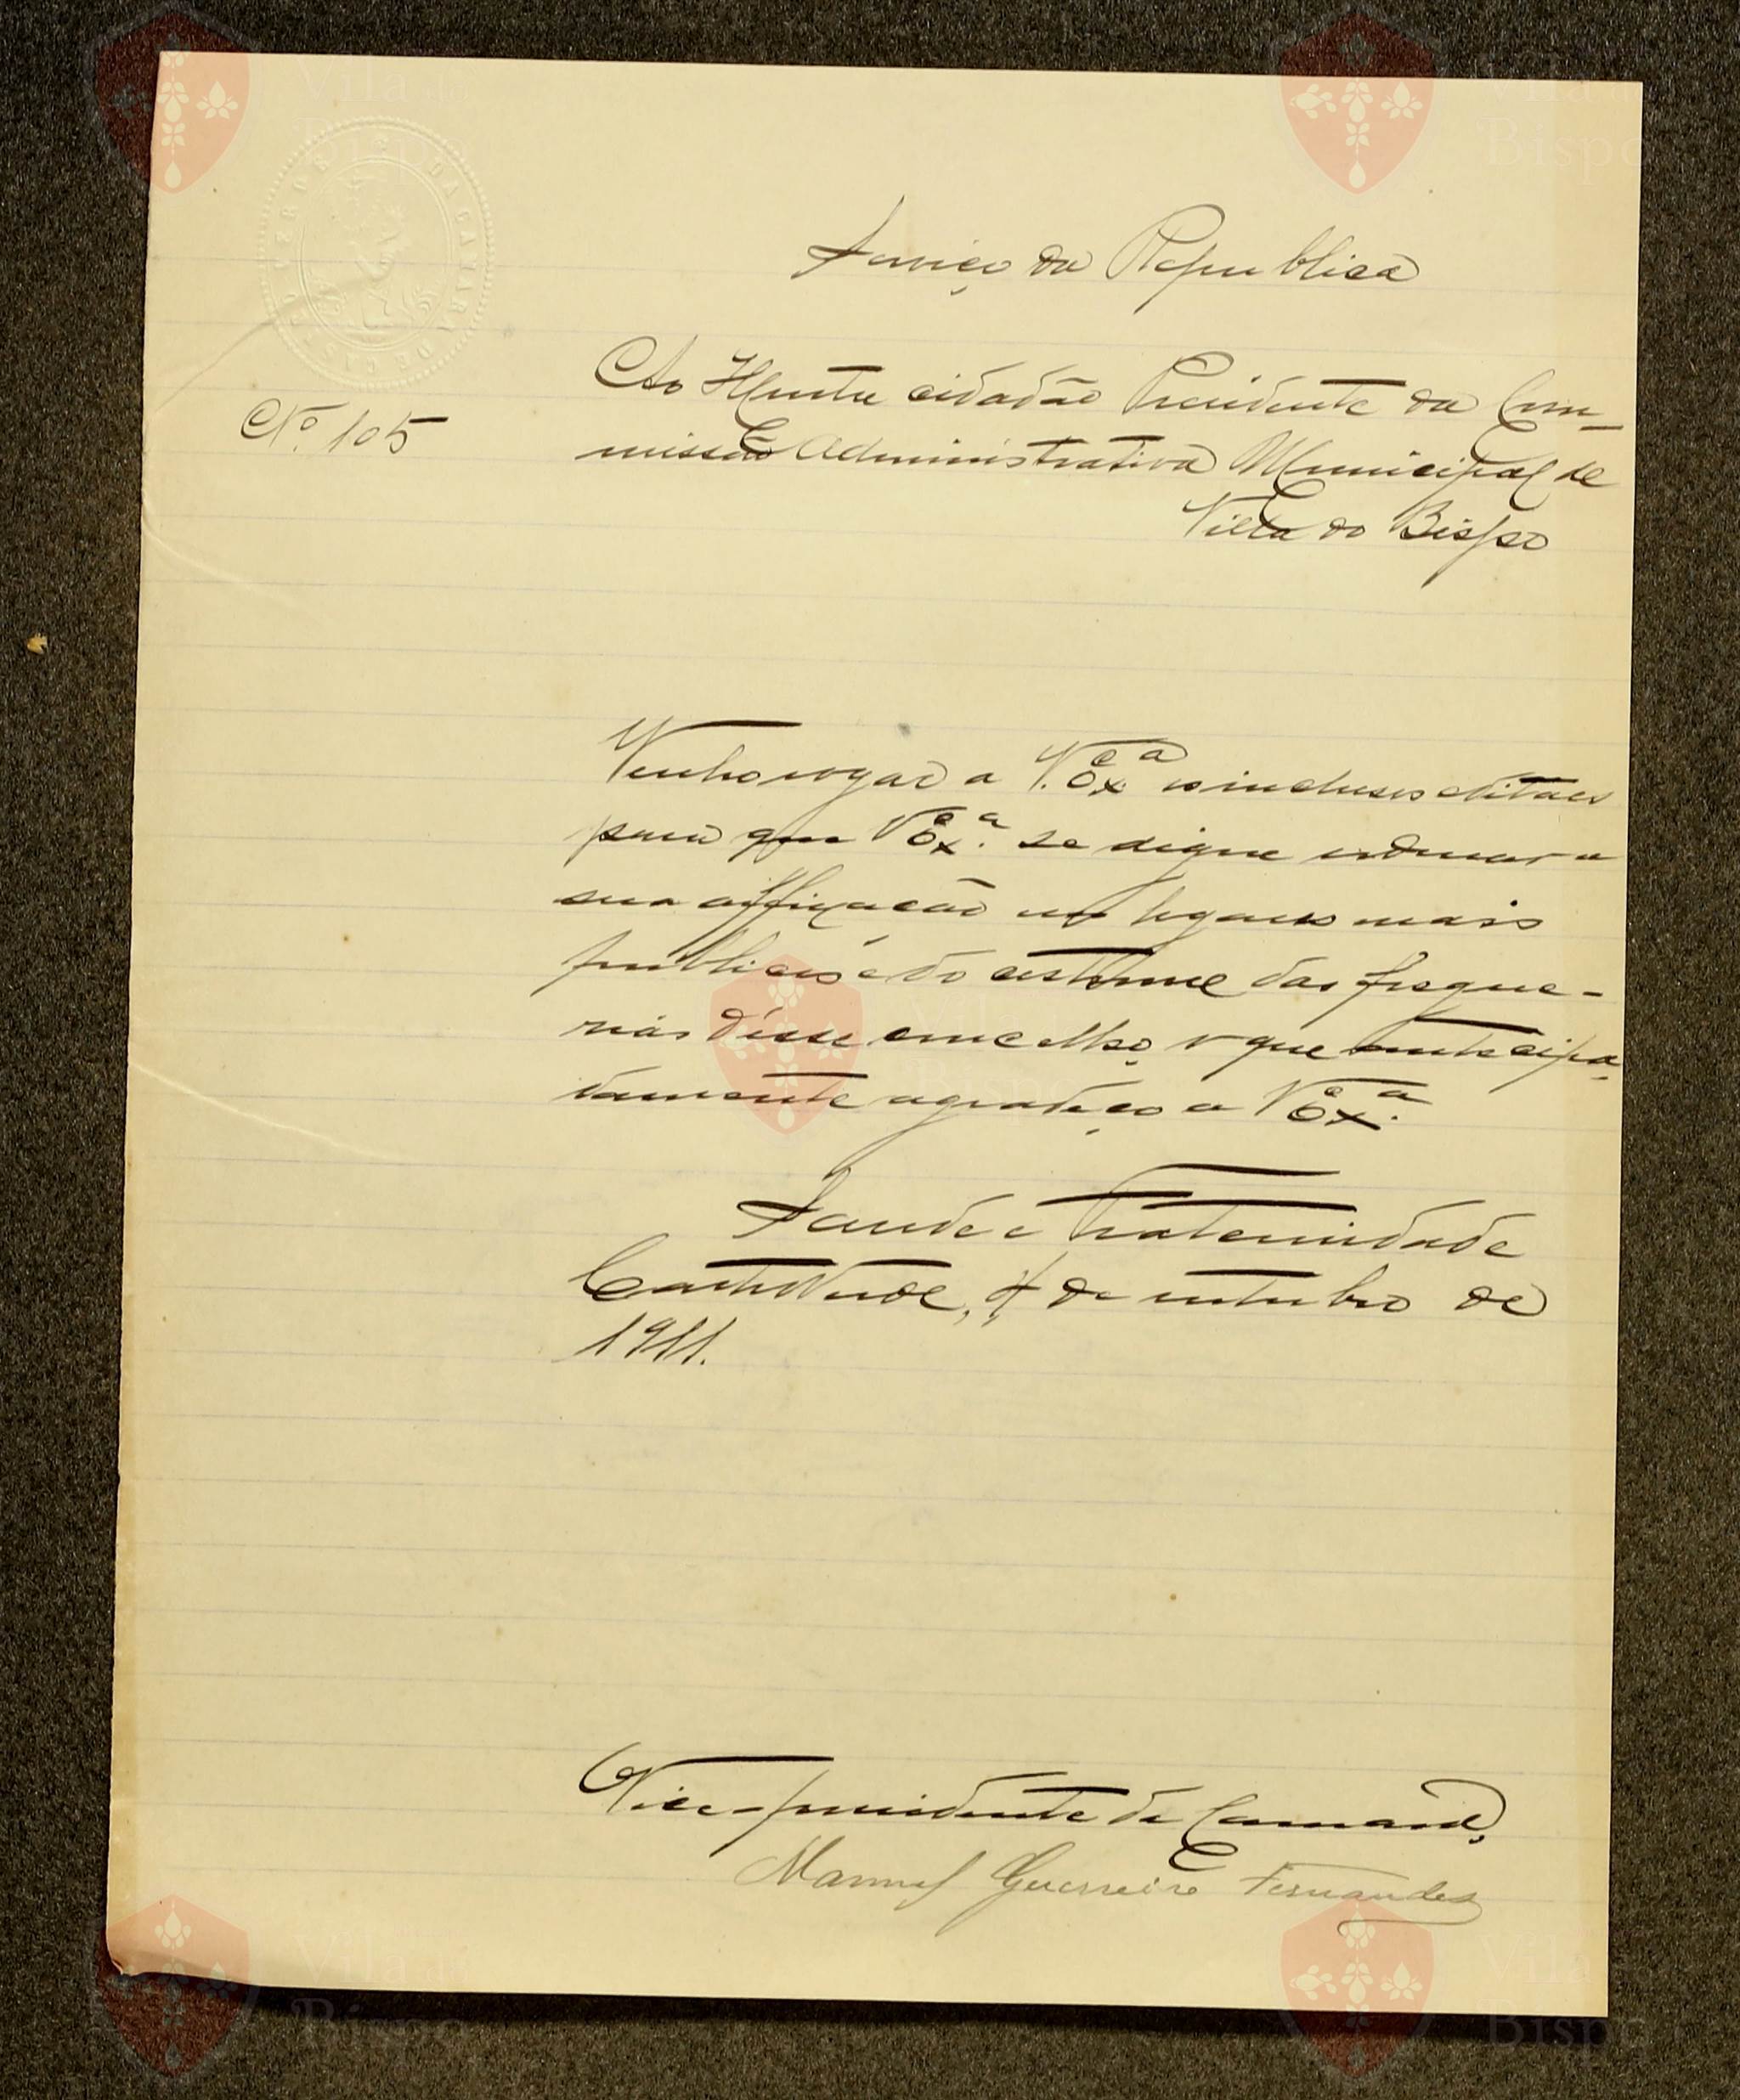 Vila do
Bispo
Vila do
Bispo
Serviço da Republica
Nº 105
Ao Illustre cidadão Presidente da Com-
missão Administrativa Municipal de
Villa do Bispo
Venho rogar a V. Exª os inclusos editaes
para que V Exª se digne ordenar a
sua affixação nos logares mais
publicos e do costume das fregue-
sias d'esse concelho, o que antecipa-
damente agradeço a V Exª.
Saude e Fraternidade
Castro Verde, 4 de outubro de
1911.
O Vice-presidente da Camara,
Manuel Guerreiro Fernandes
Vila do
Bispo
Vila do
Bispo
Vila
Bispo